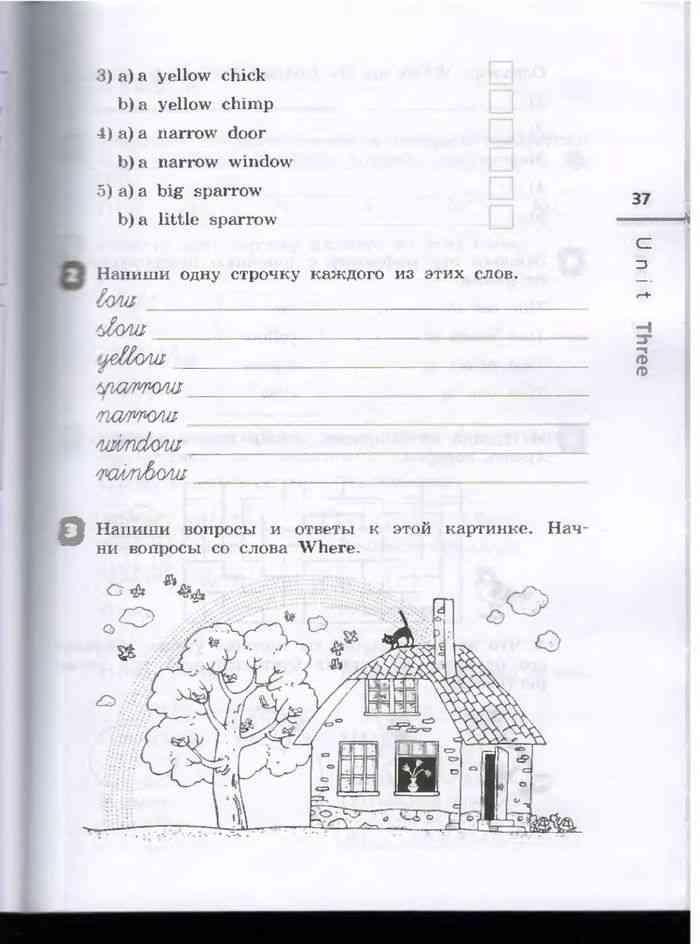 3) a) a yellow chick
b) a yellow chimp
4) a) a narrow door
b) a narrow window
5) a) a big sparrow
b) a little sparrow
37
Unit Three
2 Напиши одну строчку каждого из этих слов.
low
slow
yellow
sparrow
narrow
window
rainbow
3 Напиши вопросы и ответы к этой картинке. Нач-
ни вопросы со слова Where.